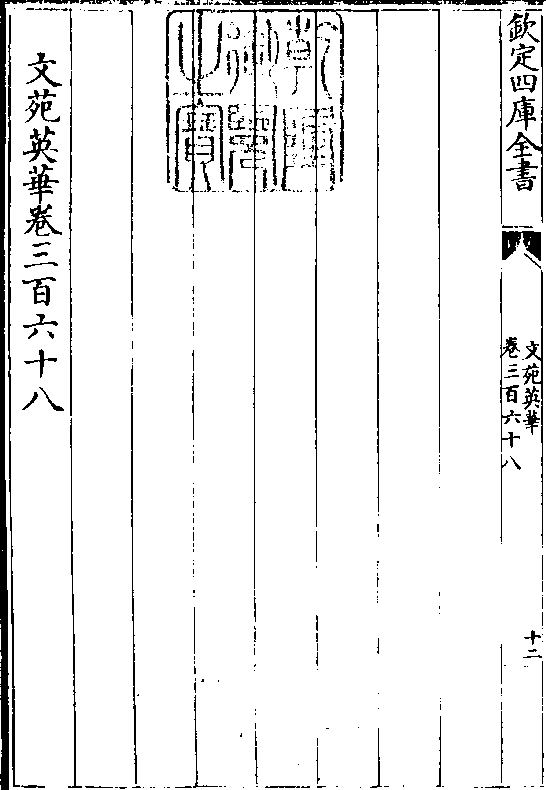 欽定四庫全書
文苑英華
卷三百六十八
十二
乾隆御覽之寶
文苑英華卷三百六十八